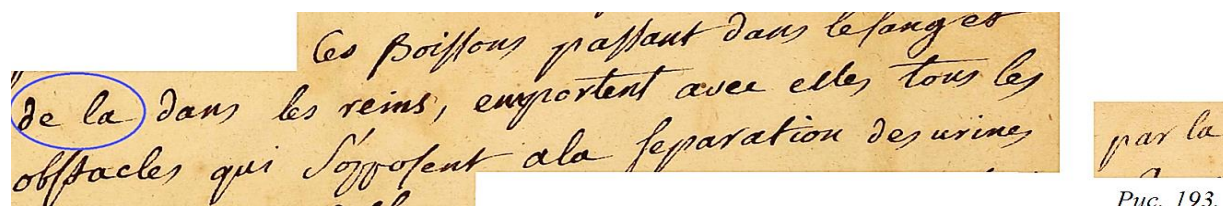 Ces Boissons passant dans le sang et
de la dans les reins, emportent avec elles tous les
obstacles qui s'opposent a la separation des urines
par la
Рис. 193.